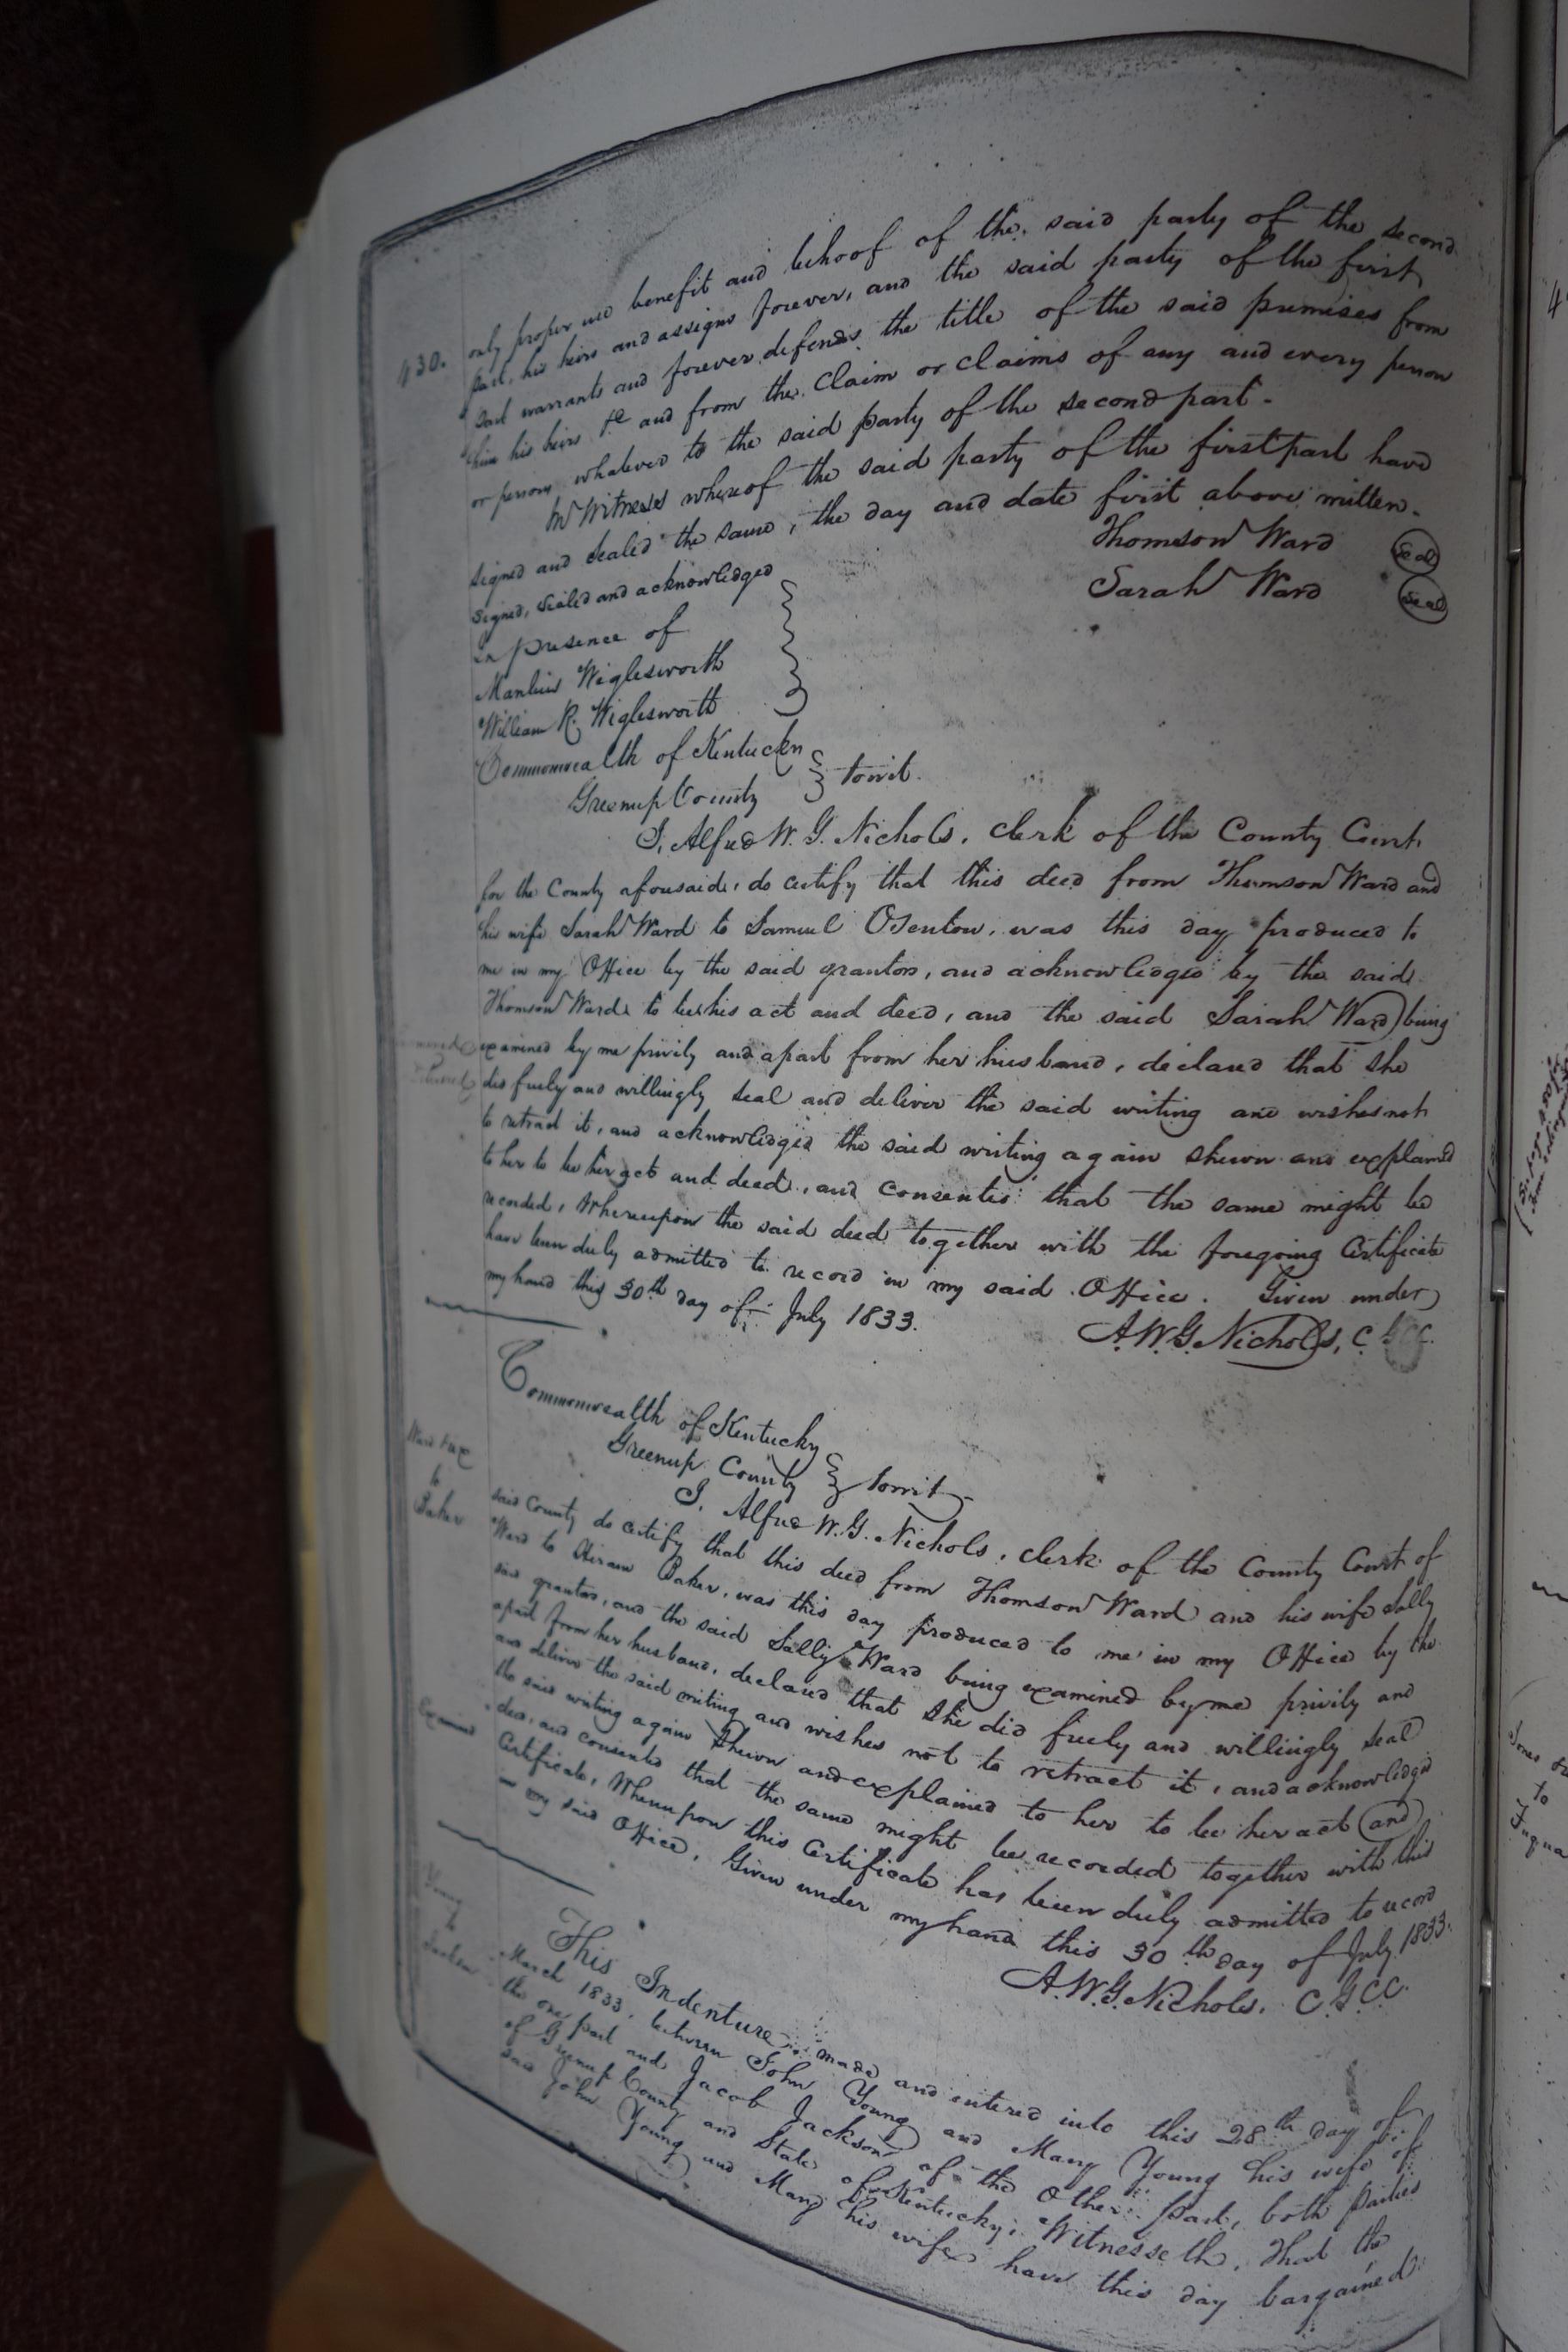 430.
only proper use benefit and behoof of the said party of the second
part, his heirs and assigns forever, and the said party of the first
part warrants and forever defends the title of the said premises from
him his heirs &c and from the claim or claims of any and every person
or persons whatever to the said party of the second part.
In Witness whereof the said party of the first part have
signed and sealed the same, the day and date first above written.
Thomson Ward Seal
Sarah Ward Seal
Signed, Sealed and acknowledged
in presence of
Manlius Wiglesworth
William R. Wiglesworth
Commonwealth of Kentucky
Greenup County towit.
I, Alfred W. G. Nichols, Clerk of the County Court,
for the County aforesaid, do certify that this deed from Thomson Ward and
his wife Sarah Ward to Samuel Osenton, was this day produced to
me in my Office by the said grantors, and acknowledged by the said
Thomson Ward to be his act and deed, and the said Sarah Ward being
examined by me privily and apart from her husband, declared that she
did freely and willingly seal and deliver the said writing and wishes not
to retract it, and acknowledged the said writing again shewn and explained
to her to be her act and deed, and consented that the same might be
recorded, Whereupon the said deed together with the foregoing Certificate
have been duly admitted to record in my said Office. Given under
my hand this 30th day of July 1833.
A.W.G. Nichols, C.G.C.C.
Commonwealth of Kentucky
Greenup County towit
to
Baker
I, Alfred W. G. Nichols, clerk of the County Court of
said County do certify that this deed from Thomson Ward and his wife Sally
Ward to Hiram Baker, was this day produced to me in my Office by the
said grantors, and the said Sally Ward being examined by me privily and
apart from her husband, declared that she did freely and willingly seal
and deliver the said writing and wishes not to retract it, and acknowledged
the said writing again shewn and explained to her to be her act and
deed, and consented that the same might be recorded together with this
Examined
Certificate, Whereupon this Certificate has been duly admitted to record
in my said Office. Given under my hand this 30th day of July 1833.
A.W.G. Nichols. C.G.C.C.
Young
to
Jackson
This Indenture made and entered into this 28th day of
March 1833, between John Young and Mary Young his wife of
the one part and Jacob Jackson of the other part, both parties
of Greenup County and State of Kentucky; Witnesseth, That the
said John Young and Mary his wife have this day bargained
4
to
Fuqua